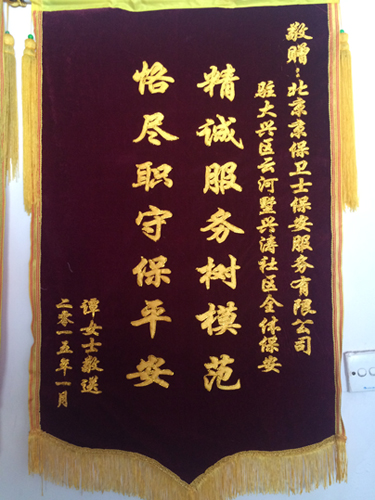 敬赠：北京京保卫士保安服务有限公司
驻大兴区云河墅兴涛社区全体保安
精诚服务树模范
恪尽职守保平安
谭女士敬送
二零一五年一月